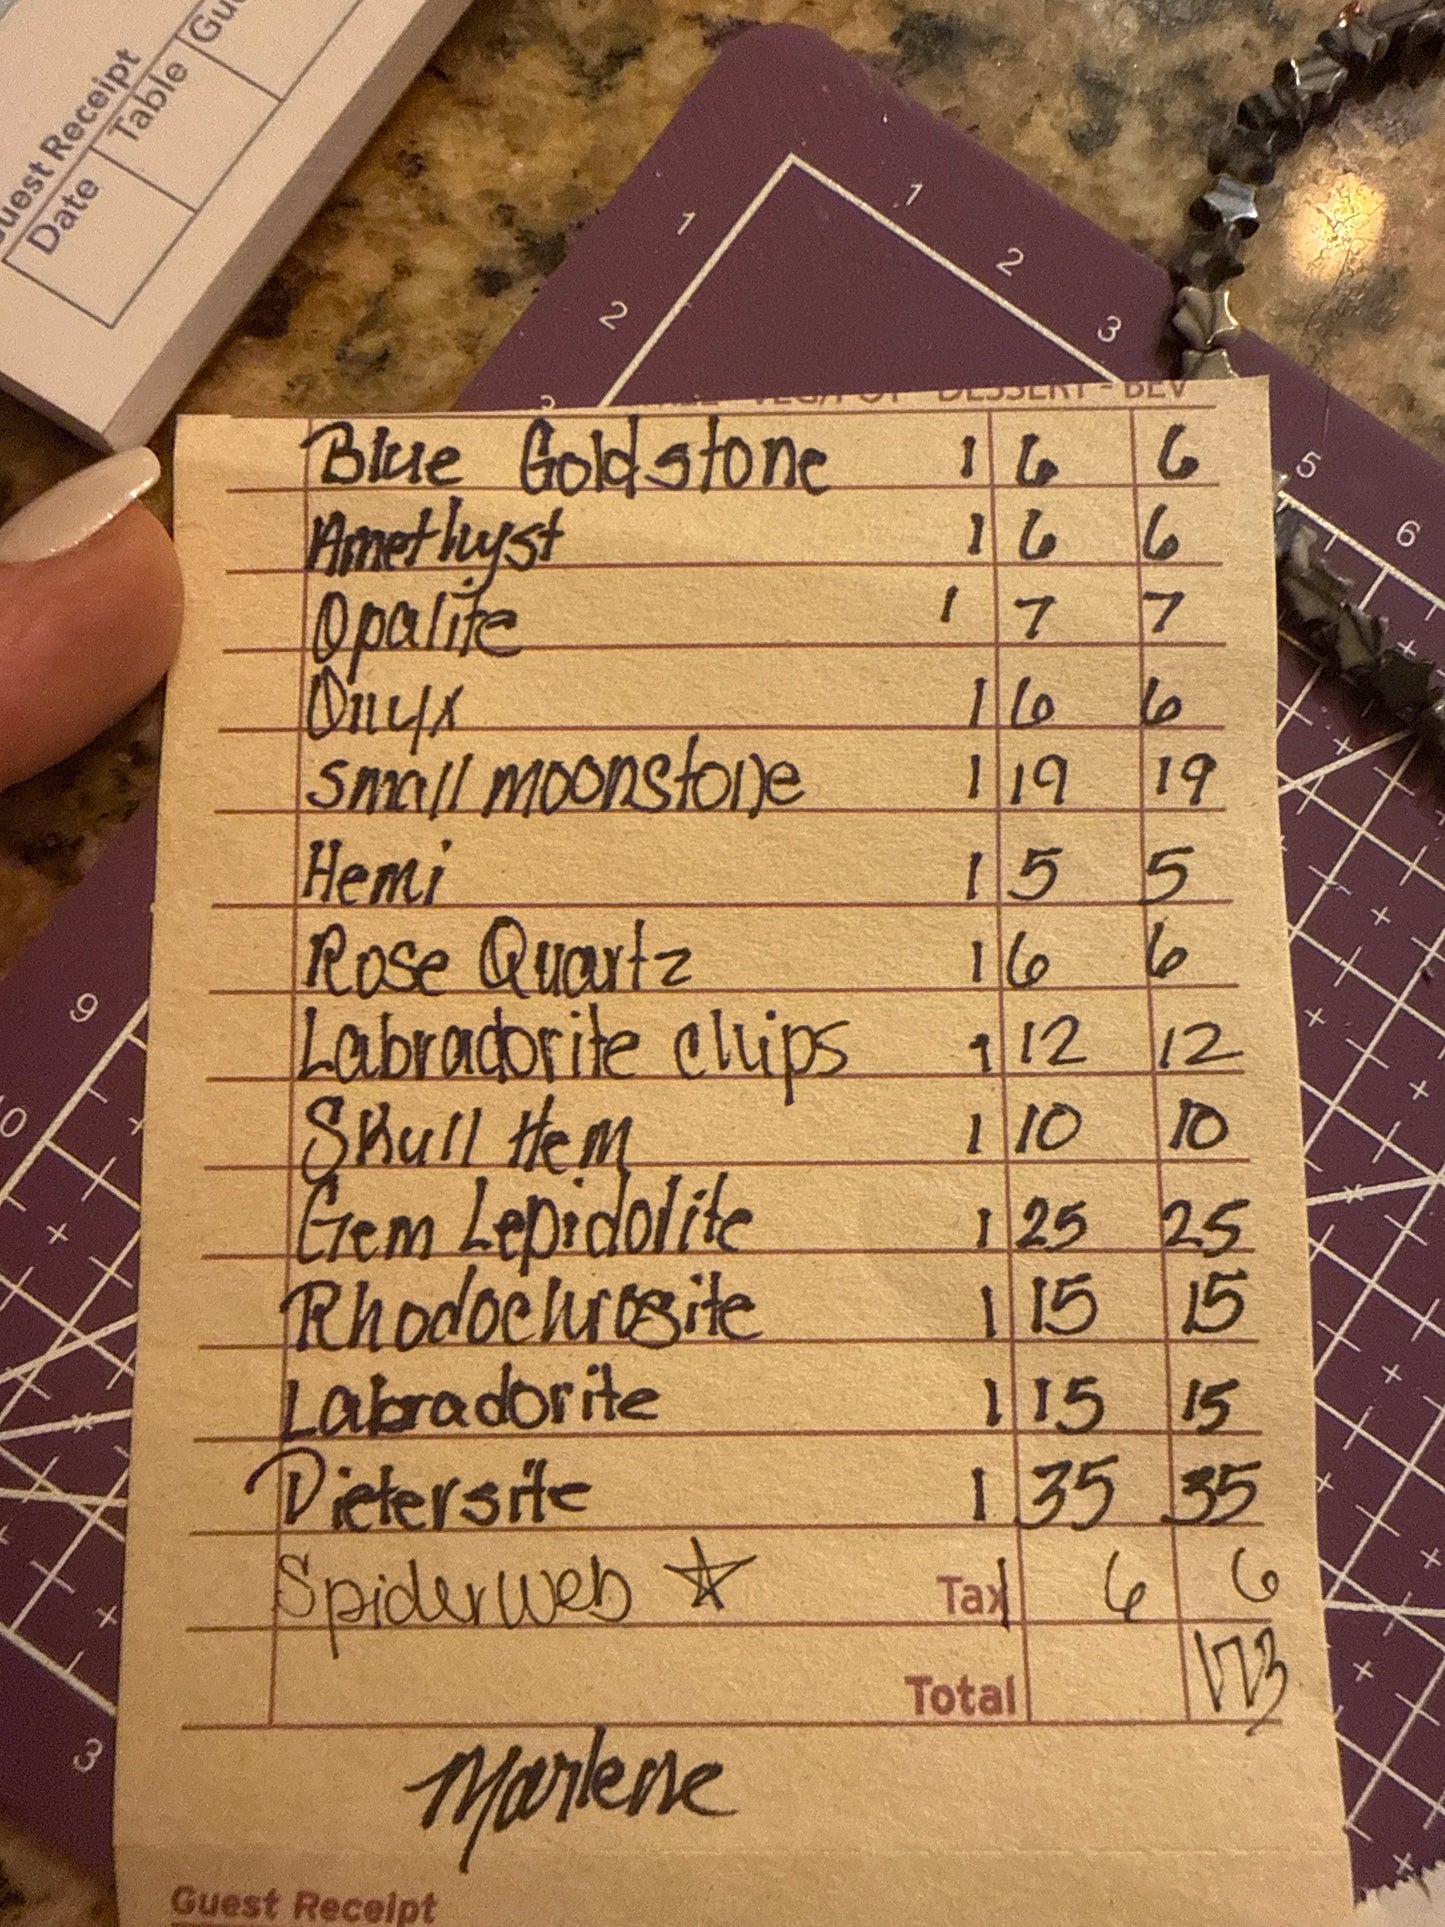 Guest Receipt
Date Table
DESSERT - BEV
Blue Goldstone 1 6 6
Amethyst 1 6 6
Opalite 1 7 7
Onyx 1 6 6
small moonstone 1 19 19
Hemi 1 5 5
Rose Quartz 1 6 6
Labradorite chips 1 12 12
Skull Hem 1 10 10
Gem Lepidolite 1 25 25
Rhodochrosite 1 15 15
Labradorite 1 15 15
Dietersite 1 35 35
Spiderweb ☆ Tax 1 6 6
Total 173
Marlene
Guest Receipt
1 2 3 5 6
1 2 3
9
3